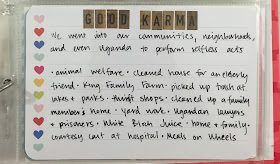 GOOD KARMA
We went into our communities, neighborhoods,
and even Uganda to perform selfless acts
• animal welfare • cleaned house for an elderly
friend • King Family Farm • picked up trash at
lakes + parks • thrift shops • cleaned up a family
member's home • yard work • Ugandan lawyers
+ prisoners • White Birch Juice • home + family •
courtesy cart at hospital • Meals on Wheels